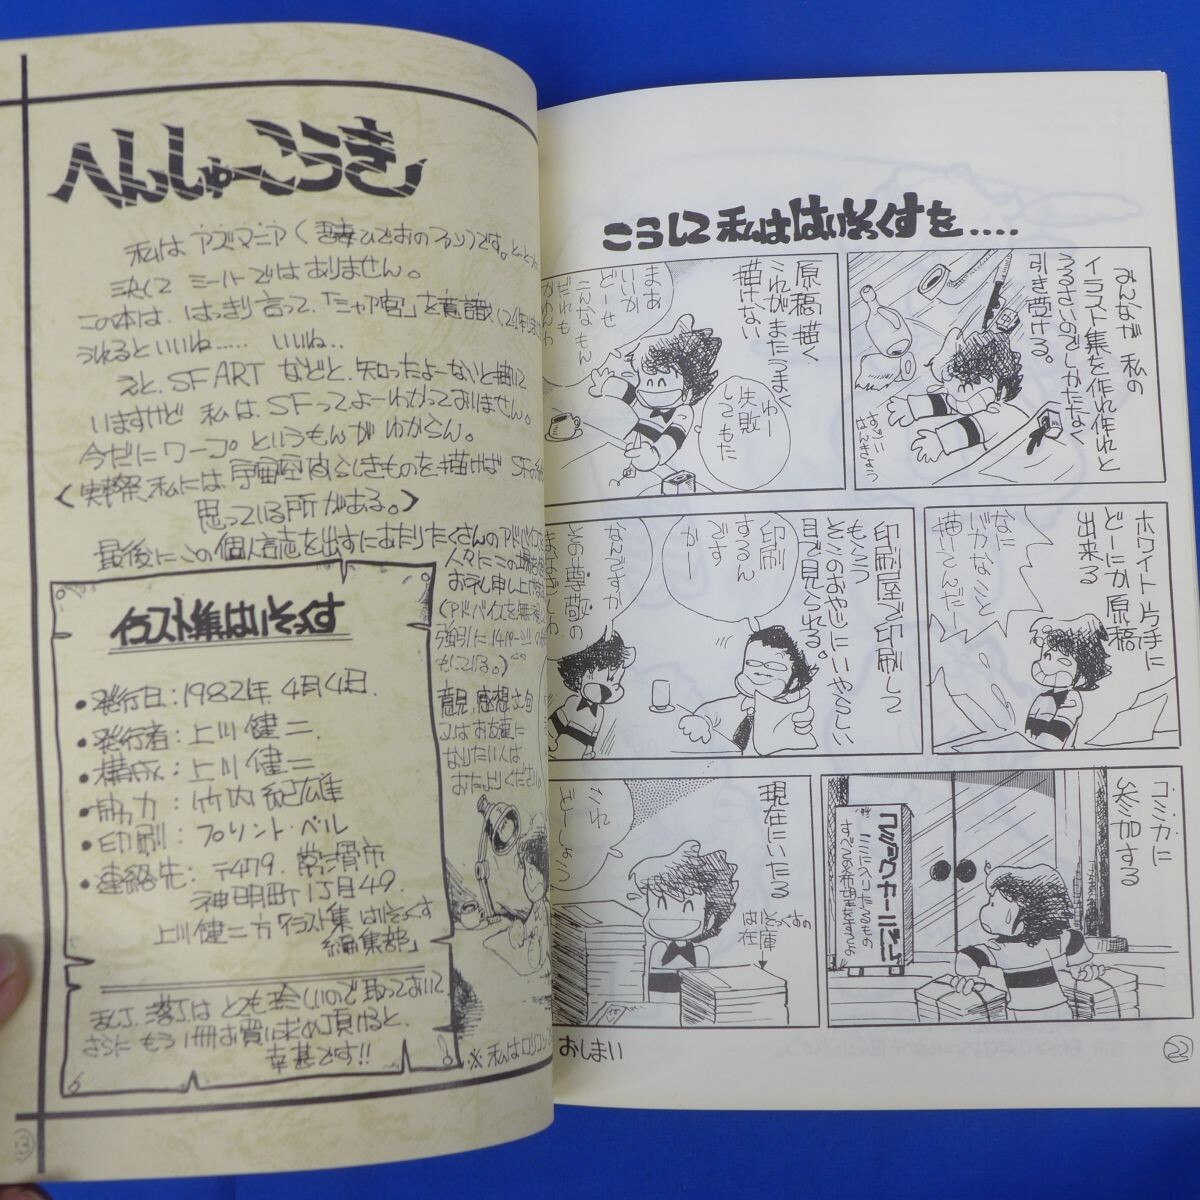 こうして私ははいそっくすを‥‥
みんなが私の
イラスト集を作れ作れと
うるさいのでしかたなく
引き受ける。
原稿描く
これがまたうまく
描けない
まあ
いいか
どーせ
こんなもん
だれも
わー
失敗
してもた
ホワイト片手に
どーにか原稿
出来る
なに
バカなこと
描っこんだ
印刷屋で印刷して
もらう
そこのおやじにいやらしい
目で見られる。
印刷
するん
ですか
なんですか
コミカに
参加する
コミックカーニバル
現在にいたる
はいそっくすの
在庫
これ
どーしよう
おしまい
22
へんしゅーこうき
私はアズマニア(吾妻ひでおのフリ)です。
決してミーハーではありません。
この本は、はっきり言って、「シャア宮」を意識し
うれるといいね‥‥ いいね‥
えと、SF ARTなどと、知ったよーないと描いて
いますけど 私は、SFってよーわかっておりません。
今だにワープというもんがわからん。
(実際、私には宇宙空間らしきものを描けばSF
思っている所がある。)
最後にこの個人誌を出すにあたりたくさんのアドバイス
人々にこの場を
お礼申し上げ
(アドバイスを無視
強引に
もいる。)
意見、感想、文句
又はお友達に
なりたい人は
おたよりください
イラスト集はいそっくす
・発行日:1982年 4月4日.
・発行者:上川健二.
・構成:上川健二
・協力:竹内紀雄
・印刷:プリント・ベル
・連絡先:〒479. 常滑市
神明町1丁目49.
上川健二方「イラスト集 はいそっくす
編集部」
乱丁、落丁はとても珍しいので取っておいて
さらにもう1冊お買い求め頂けると、
幸甚です!!
※私はロリコン